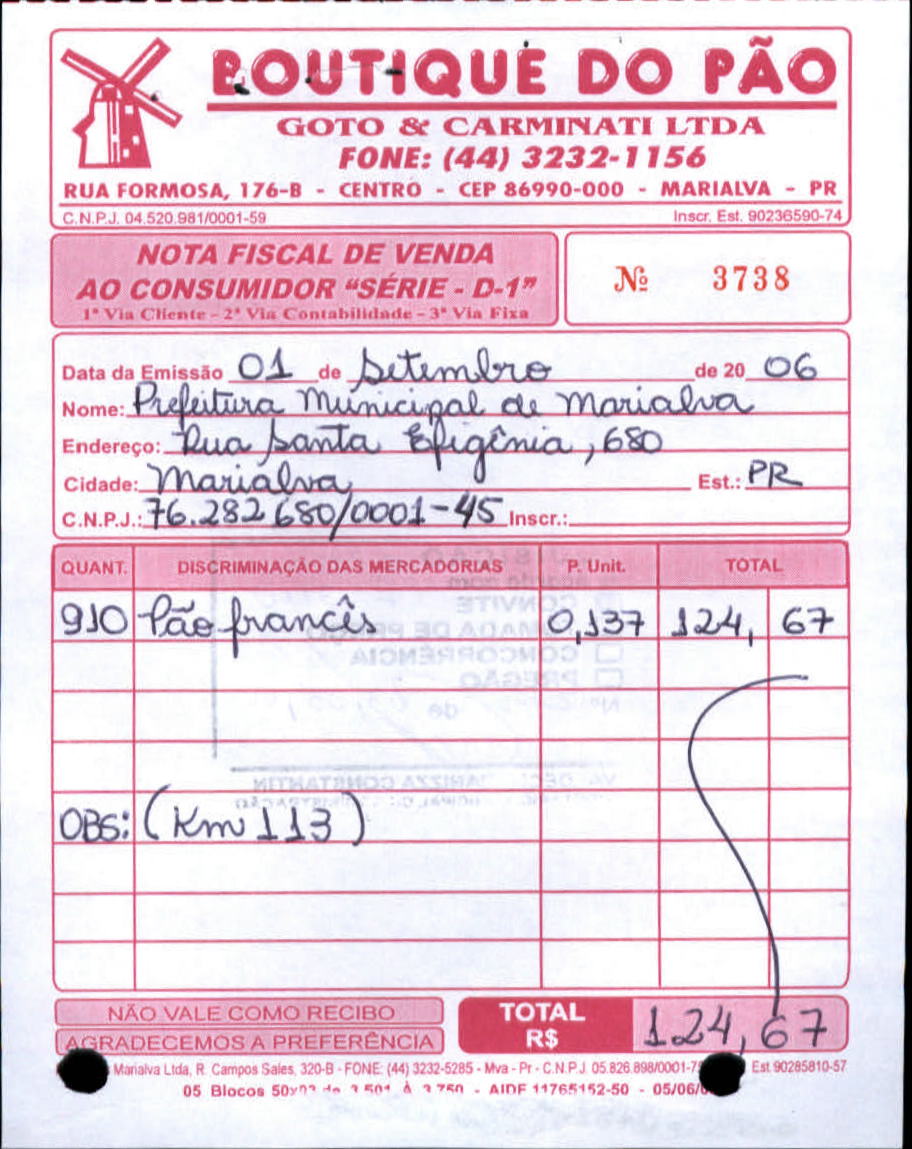 BOUTIQUE DO PÃO
GOTO & CARMINATI LTDA
FONE: (44) 3232-1156
RUA FORMOSA, 176-B - CENTRO - CEP 86990-000 - MARIALVA - PR
C.N.P.J. 04.520.981/0001-59 Inscr. Est. 90236590-74
NOTA FISCAL DE VENDA
AO CONSUMIDOR "SÉRIE - D-1"
1ª Via Cliente - 2ª Via Contabilidade - 3ª Via Fixa
Nº 3738
Data da Emissão 01 de Setembro de 20 06
Nome: Prefeitura Municipal de Marialva
Endereço: Rua Santa Efigênia, 680
Cidade: Marialva Est.: PR
C.N.P.J.: 76.282.680/0001-45 Inscr.:
QUANT. DISCRIMINAÇÃO DAS MERCADORIAS P. Unit. TOTAL
910 Pão francês 0,137 124,67
OBS: (Km 113)
NÃO VALE COMO RECIBO
AGRADECEMOS A PREFERÊNCIA
TOTAL
R$ 124,67
Marialva Ltda, R. Campos Sales, 320-B - FONE: (44) 3232-5285 - Mva - Pr - C.N.P.J. 05.826.898/0001-7 Est. 90285810-57
05 Blocos 3.750 - AIDF 11765152-50 - 05/06/